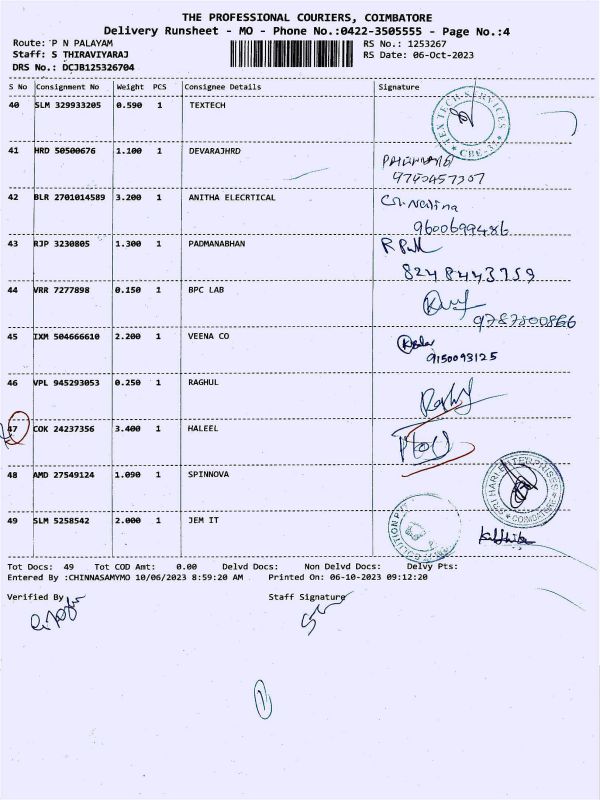 THE PROFESSIONAL COURIERS, COIMBATORE
Delivery Runsheet - MO - Phone No.:0422-3505555 - Page No.:4
Route: P N PALAYAM RS No.: 1253267
Staff: S THIRAVIYARAJ RS Date: 06-Oct-2023
DRS No.: DCJB125326704
S No Consignment No Weight PCS Consignee Details Signature
40 SLM 329933205 0.590 1 TEXTECH
TEX TECH SERVICES
CBE-37
41 HRD 50500676 1.100 1 DEVARAJHRD
42 BLR 2701014589 3.200 1 ANITHA ELECRTICAL
9600699486
43 RJP 3230805 1.300 1 PADMANABHAN
8248443759
44 VRR 7277898 0.150 1 BPC LAB
9787800866
45 IXM 504666610 2.200 1 VEENA CO
9150093125
46 VPL 945293053 0.250 1 RAGHUL
47 COK 24237356 3.400 1 HALEEL
48 AMD 27549124 1.090 1 SPINNOVA
ENTERPRISES
COIMBATORE
49 SLM 5258542 2.000 1 JEM IT
SOLUTION
Tot Docs: 49 Tot COD Amt: 0.00 Delvd Docs: Non Delvd Docs: Delvy Pts:
Entered By :CHINNASAMYMO 10/06/2023 8:59:20 AM Printed On: 06-10-2023 09:12:20
Verified By Staff Signature